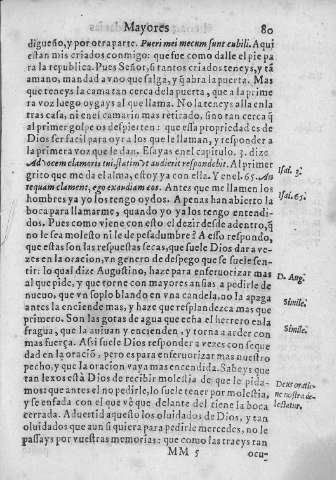 Mayores 80
digueño, y por otra parte. Pueri mei mecum sunt cubili. Aqui
estan mis criados conmigo: que fue como dalle el pie pa
ra la republica. Pues Señor, si tantos criados teneys, y tã
a mano, mandad a vno que salga, y q̃ abra la puerta. Mas
que teneys la cama tan cerca dela puerta, que a la prime
ra voz luego oygays al que llama. No la teneys alla en la
tras casa, ni enel camarin mas retirado, sino tan cerca q̃
al primer golpe os despierten: que essa propriedad es de
Dios ser facil para oyr a los que le llaman, y responder a
la primera voz que le dan. Esayas en el capitulo. 3. dize
Ad vocem clamoris tui, statim vt audierit respondebit. Al primer
grito que me da el alma, estoy ya con ella. Y en el. 65. An
tequam clament, ego exaudiam eos. Antes que me llamen los
hombres ya yo los tengo oydos. A penas han abierto la
boca para llamarme, quando yo ya los tengo entendi-
dos. Pues como viene con esto el dezir desde adentro, q̃
no le sea molesto ni le de pesadumbre? A esso respondo,
que estas son las respuestas secas, que suele Dios dar a ve-
zes en la oracion, vn genero de despego que se suele sen-
tir: lo qual dize Augustino, haze para enferuorizar mas
al que pide, y que torne con mayores ansias a pedirle de
nueuo, que vn soplo blando en vna candela, no la apaga
antes la enciende mas, y haze que resplandezca mas que
primero. Son las gotas de agua que echa el herrero en la
fragua, que la auiuan y encienden, y torna a arder con
mas fuerça. Assi suele Dios responder a vezes con seque
dad en la oraciõ, pero es para enferuorizar mas nuestro
pecho, y que la oracion vaya mas encendida. Sabeys que
tan lexos està Dios de recibir molestia de que le pida-
mos: que antes el no pedirle, lo suele tener por molestia,
y se enfada con el que vè que delante del tiene la boca
cerrada. Aduertid aquesto los oluidados de Dios, y tan
oluidados que aun si quiera para pedirle mercedes, no le
passays por vuestras memorias: que como las traeys tan
MM 5 ocu-
Isai. 3.
Isai. 65.
D. Aug.
Simile.
Simile.
Deus oratio-
ne nostra de-
lectatur.